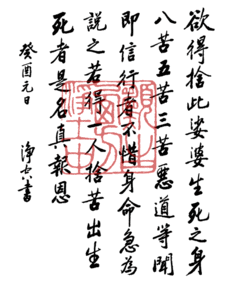 欲得捨此娑婆生死之身
八苦五苦三苦惡道等聞
即信行者不惜身命急為
說之若得一人捨苦出生
死者是名真報恩
癸酉元日
淨空書